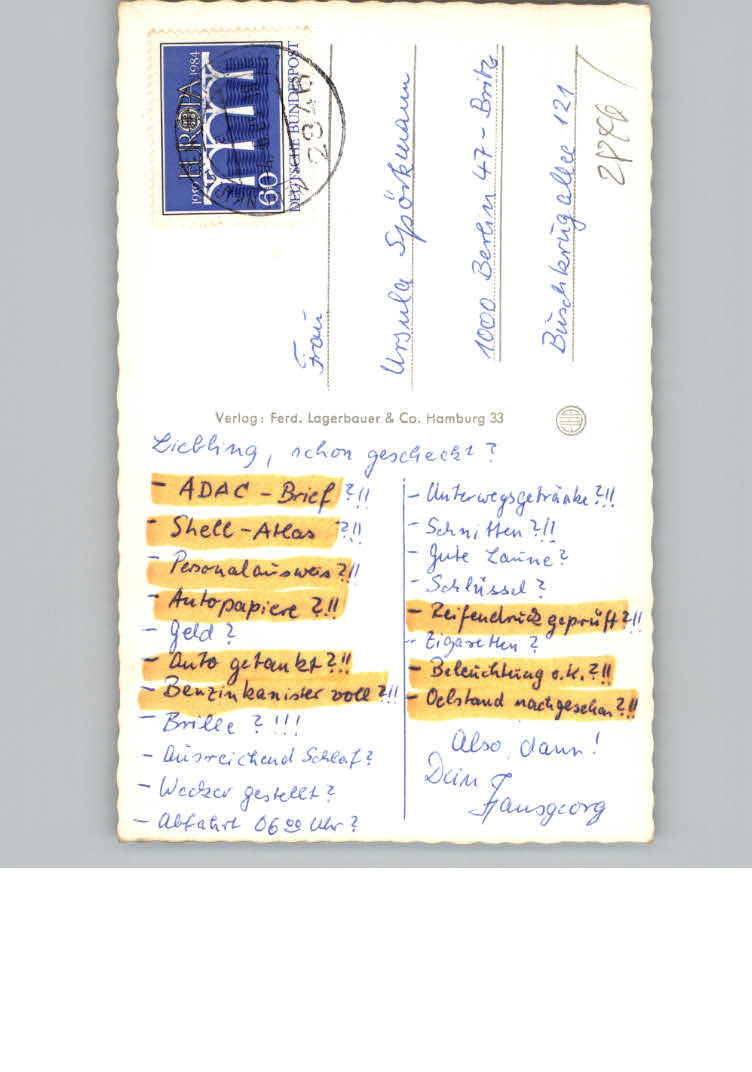 1959 EUROPA 1984
60
DEUTSCHE BUNDESPOST
2846
Frau
Ursula Spörkmann
1000 Berlin 47 - Britz
Buschkrugallee 121
Verlag: Ferd. Lagerbauer & Co. Hamburg 33
Liebling, schon gescheckt?
- ADAC - Brief ?!!
- Shell - Atlas ?!!
- Personalausweis ?!!
- Autopapiere ?!!
- Geld ?
- Auto getankt ?!!
- Benzinkanister voll ?!!
- Brille ? !!!
- Ausreichend Schlaf ?
- Wecker gestellt ?
- Abfahrt 06 00 Uhr ?
- Unterwegsgetränke ?!!
- Schnitten ?!!
- Gute Laune ?
- Schlüssel ?
- Reifendruck geprüft ?!!
- Zigaretten ?
- Beleuchtung o.k. ?!!
- Oelstand nachgesehen ?!!
Also, dann!
Dein
Hansgeorg